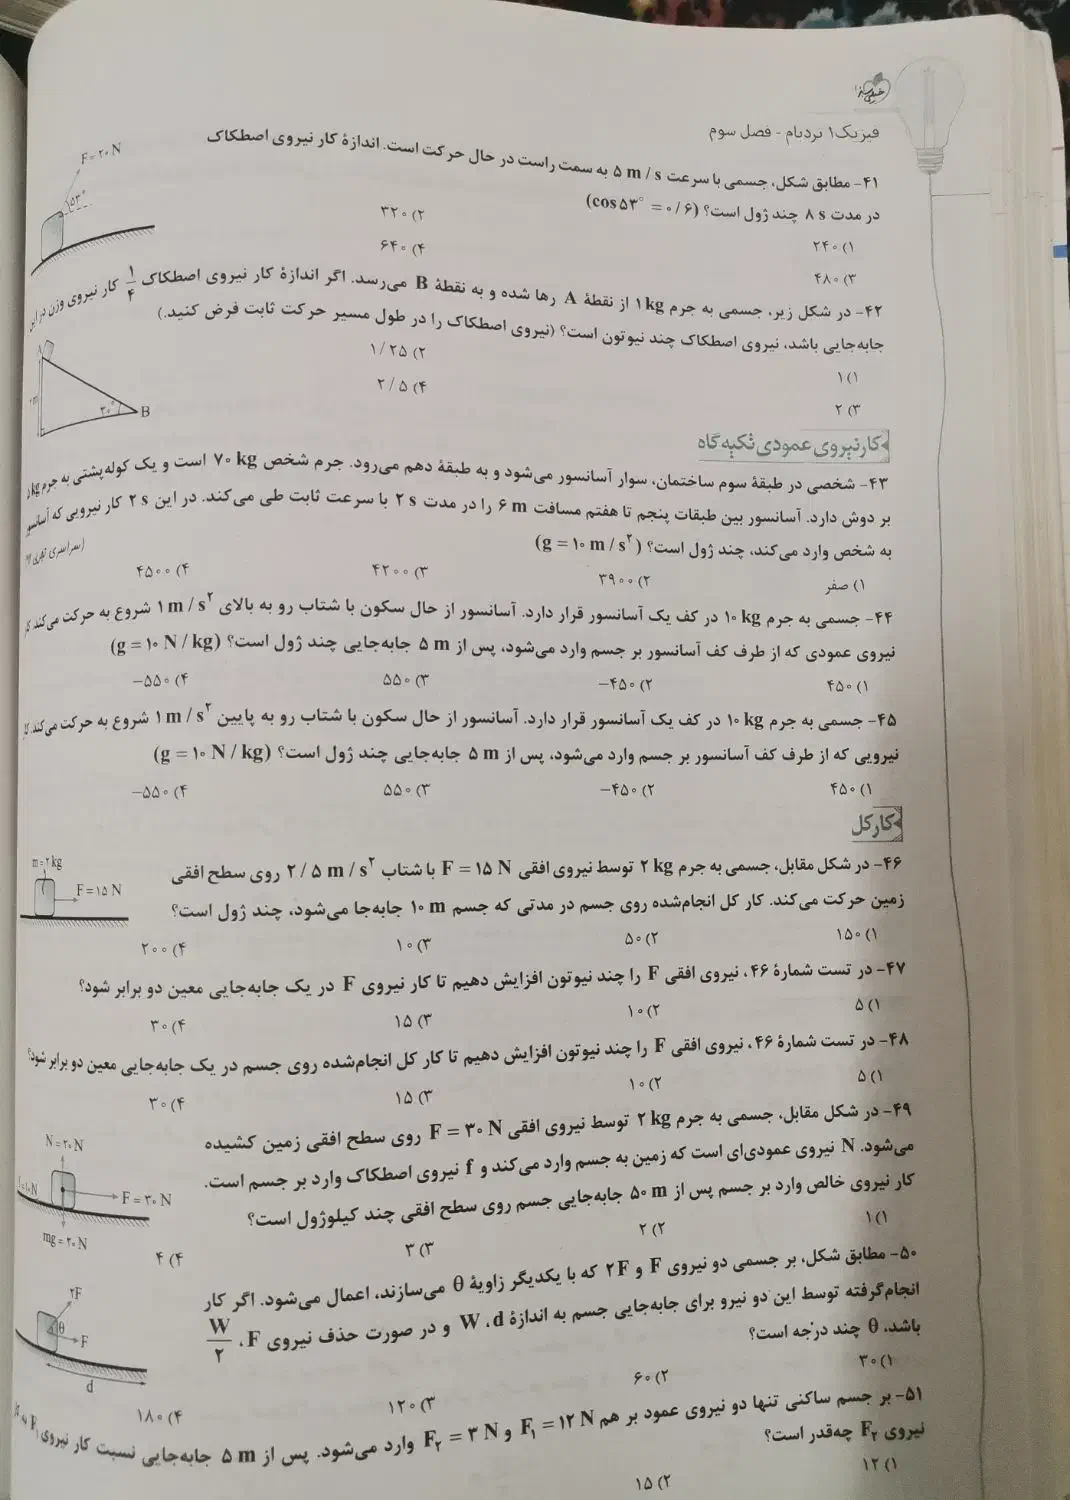 خیلی سبز
فیزیک ۱ نردبام - فصل سوم
۴۱- مطابق شکل، جسمی با سرعت ۵ m / s به سمت راست در حال حرکت است. اندازهٔ کار نیروی اصطکاک
در مدت ۸ s چند ژول است؟ (cos ۵۳° = ۰/۶)
F = ۲۰ N
۵۳°
۱) ۲۴۰
۲) ۳۲۰
۳) ۴۸۰
۴) ۶۴۰
۴۲- در شکل زیر، جسمی به جرم ۱ kg از نقطهٔ A رها شده و به نقطهٔ B می‌رسد. اگر اندازهٔ کار نیروی اصطکاک ۱/۴ کار نیروی وزن در این
جابه‌جایی باشد، نیروی اصطکاک چند نیوتون است؟ (نیروی اصطکاک را در طول مسیر حرکت ثابت فرض کنید.)
A
m
۳۰°
B
۱) ۱
۲) ۱/۲۵
۳) ۲
۴) ۲/۵
کار نیروی عمودی تکیه‌گاه
۴۳- شخصی در طبقهٔ سوم ساختمان، سوار آسانسور می‌شود و به طبقهٔ دهم می‌رود. جرم شخص ۷۰ kg است و یک کوله‌پشتی به جرم kg
بر دوش دارد. آسانسور بین طبقات پنجم تا هفتم مسافت ۶ m را در مدت ۲ s با سرعت ثابت طی می‌کند. در این ۲ s کار نیرویی که آسانسور
به شخص وارد می‌کند، چند ژول است؟ (g = ۱۰ m / s²)
(سراسری تجربی
۱) صفر
۲) ۳۹۰۰
۳) ۴۲۰۰
۴) ۴۵۰۰
۴۴- جسمی به جرم ۱۰ kg در کف یک آسانسور قرار دارد. آسانسور از حال سکون با شتاب رو به بالای ۱ m / s² شروع به حرکت می‌کند.
نیروی عمودی که از طرف کف آسانسور بر جسم وارد می‌شود، پس از ۵ m جابه‌جایی چند ژول است؟ (g = ۱۰ N / kg)
۱) ۴۵۰
۲) ۴۵۰−
۳) ۵۵۰
۴) ۵۵۰−
۴۵- جسمی به جرم ۱۰ kg در کف یک آسانسور قرار دارد. آسانسور از حال سکون با شتاب رو به پایین ۱ m / s² شروع به حرکت می‌کند.
نیرویی که از طرف کف آسانسور بر جسم وارد می‌شود، پس از ۵ m جابه‌جایی چند ژول است؟ (g = ۱۰ N / kg)
۱) ۴۵۰
۲) ۴۵۰−
۳) ۵۵۰
۴) ۵۵۰−
کار کل
۴۶- در شکل مقابل، جسمی به جرم ۲ kg توسط نیروی افقی F = ۱۵ N با شتاب ۲/۵ m / s² روی سطح افقی
زمین حرکت می‌کند. کار کل انجام‌شده روی جسم در مدتی که جسم ۱۰ m جابه‌جا می‌شود، چند ژول است؟
m = ۲ kg
F = ۱۵ N
۱) ۱۵۰
۲) ۵۰
۳) ۱۰
۴) ۲۰۰
۴۷- در تست شمارهٔ ۴۶، نیروی افقی F را چند نیوتون افزایش دهیم تا کار نیروی F در یک جابه‌جایی معین دو برابر شود؟
۱) ۵
۲) ۱۰
۳) ۱۵
۴) ۳۰
۴۸- در تست شمارهٔ ۴۶، نیروی افقی F را چند نیوتون افزایش دهیم تا کار کل انجام‌شده روی جسم در یک جابه‌جایی معین دو برابر شود؟
۱) ۵
۲) ۱۰
۳) ۱۵
۴) ۳۰
۴۹- در شکل مقابل، جسمی به جرم ۲ kg توسط نیروی افقی F = ۳۰ N روی سطح افقی زمین کشیده
می‌شود. N نیروی عمودی‌ای است که زمین به جسم وارد می‌کند و f نیروی اصطکاک وارد بر جسم است.
کار نیروی خالص وارد بر جسم پس از ۵۰ m جابه‌جایی جسم روی سطح افقی چند کیلوژول است؟
N = ۲۰ N
F = ۳۰ N
mg = ۲۰ N
۱) ۱
۲) ۲
۳) ۳
۴) ۴
۵۰- مطابق شکل، بر جسمی دو نیروی F و ۲F که با یکدیگر زاویهٔ θ می‌سازند، اعمال می‌شود. اگر کار
انجام‌گرفته توسط این دو نیرو برای جابه‌جایی جسم به اندازهٔ d، W و در صورت حذف نیروی F، W/۲
باشد، θ چند درجه است؟
۲F
θ
F
d
۱) ۳۰
۲) ۶۰
۳) ۱۲۰
۴) ۱۸۰
۵۱- بر جسم ساکنی تنها دو نیروی عمود بر هم F₁ = ۱۲ N و F₂ = ۳ N وارد می‌شود. پس از ۵ m جابه‌جایی نسبت کار نیروی F₁ به
نیروی F₂ چه‌قدر است؟
۱) ۱۲
۲) ۱۵